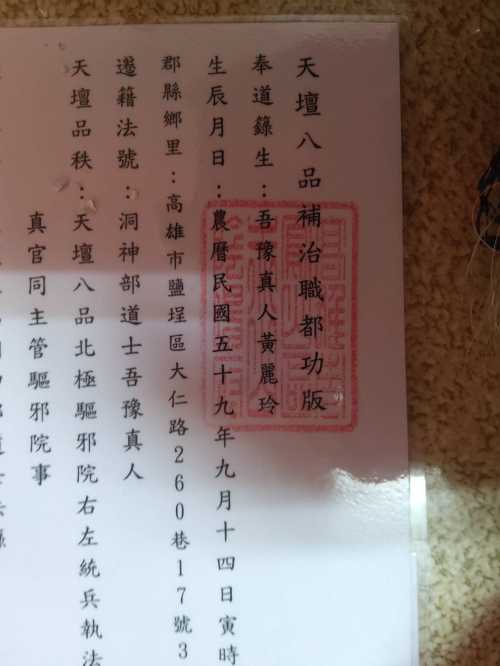 天壇八品補治職都功版
奉道籙生：吾豫真人黃麗玲
生辰月日：農曆民國五十九年九月十四日寅時
郡縣鄉里：高雄市鹽埕區大仁路260巷17號3
遷籍法號：洞神部道士吾豫真人
天壇品秩：天壇八品北極驅邪院右左統兵執法
真官同主管驅邪院事